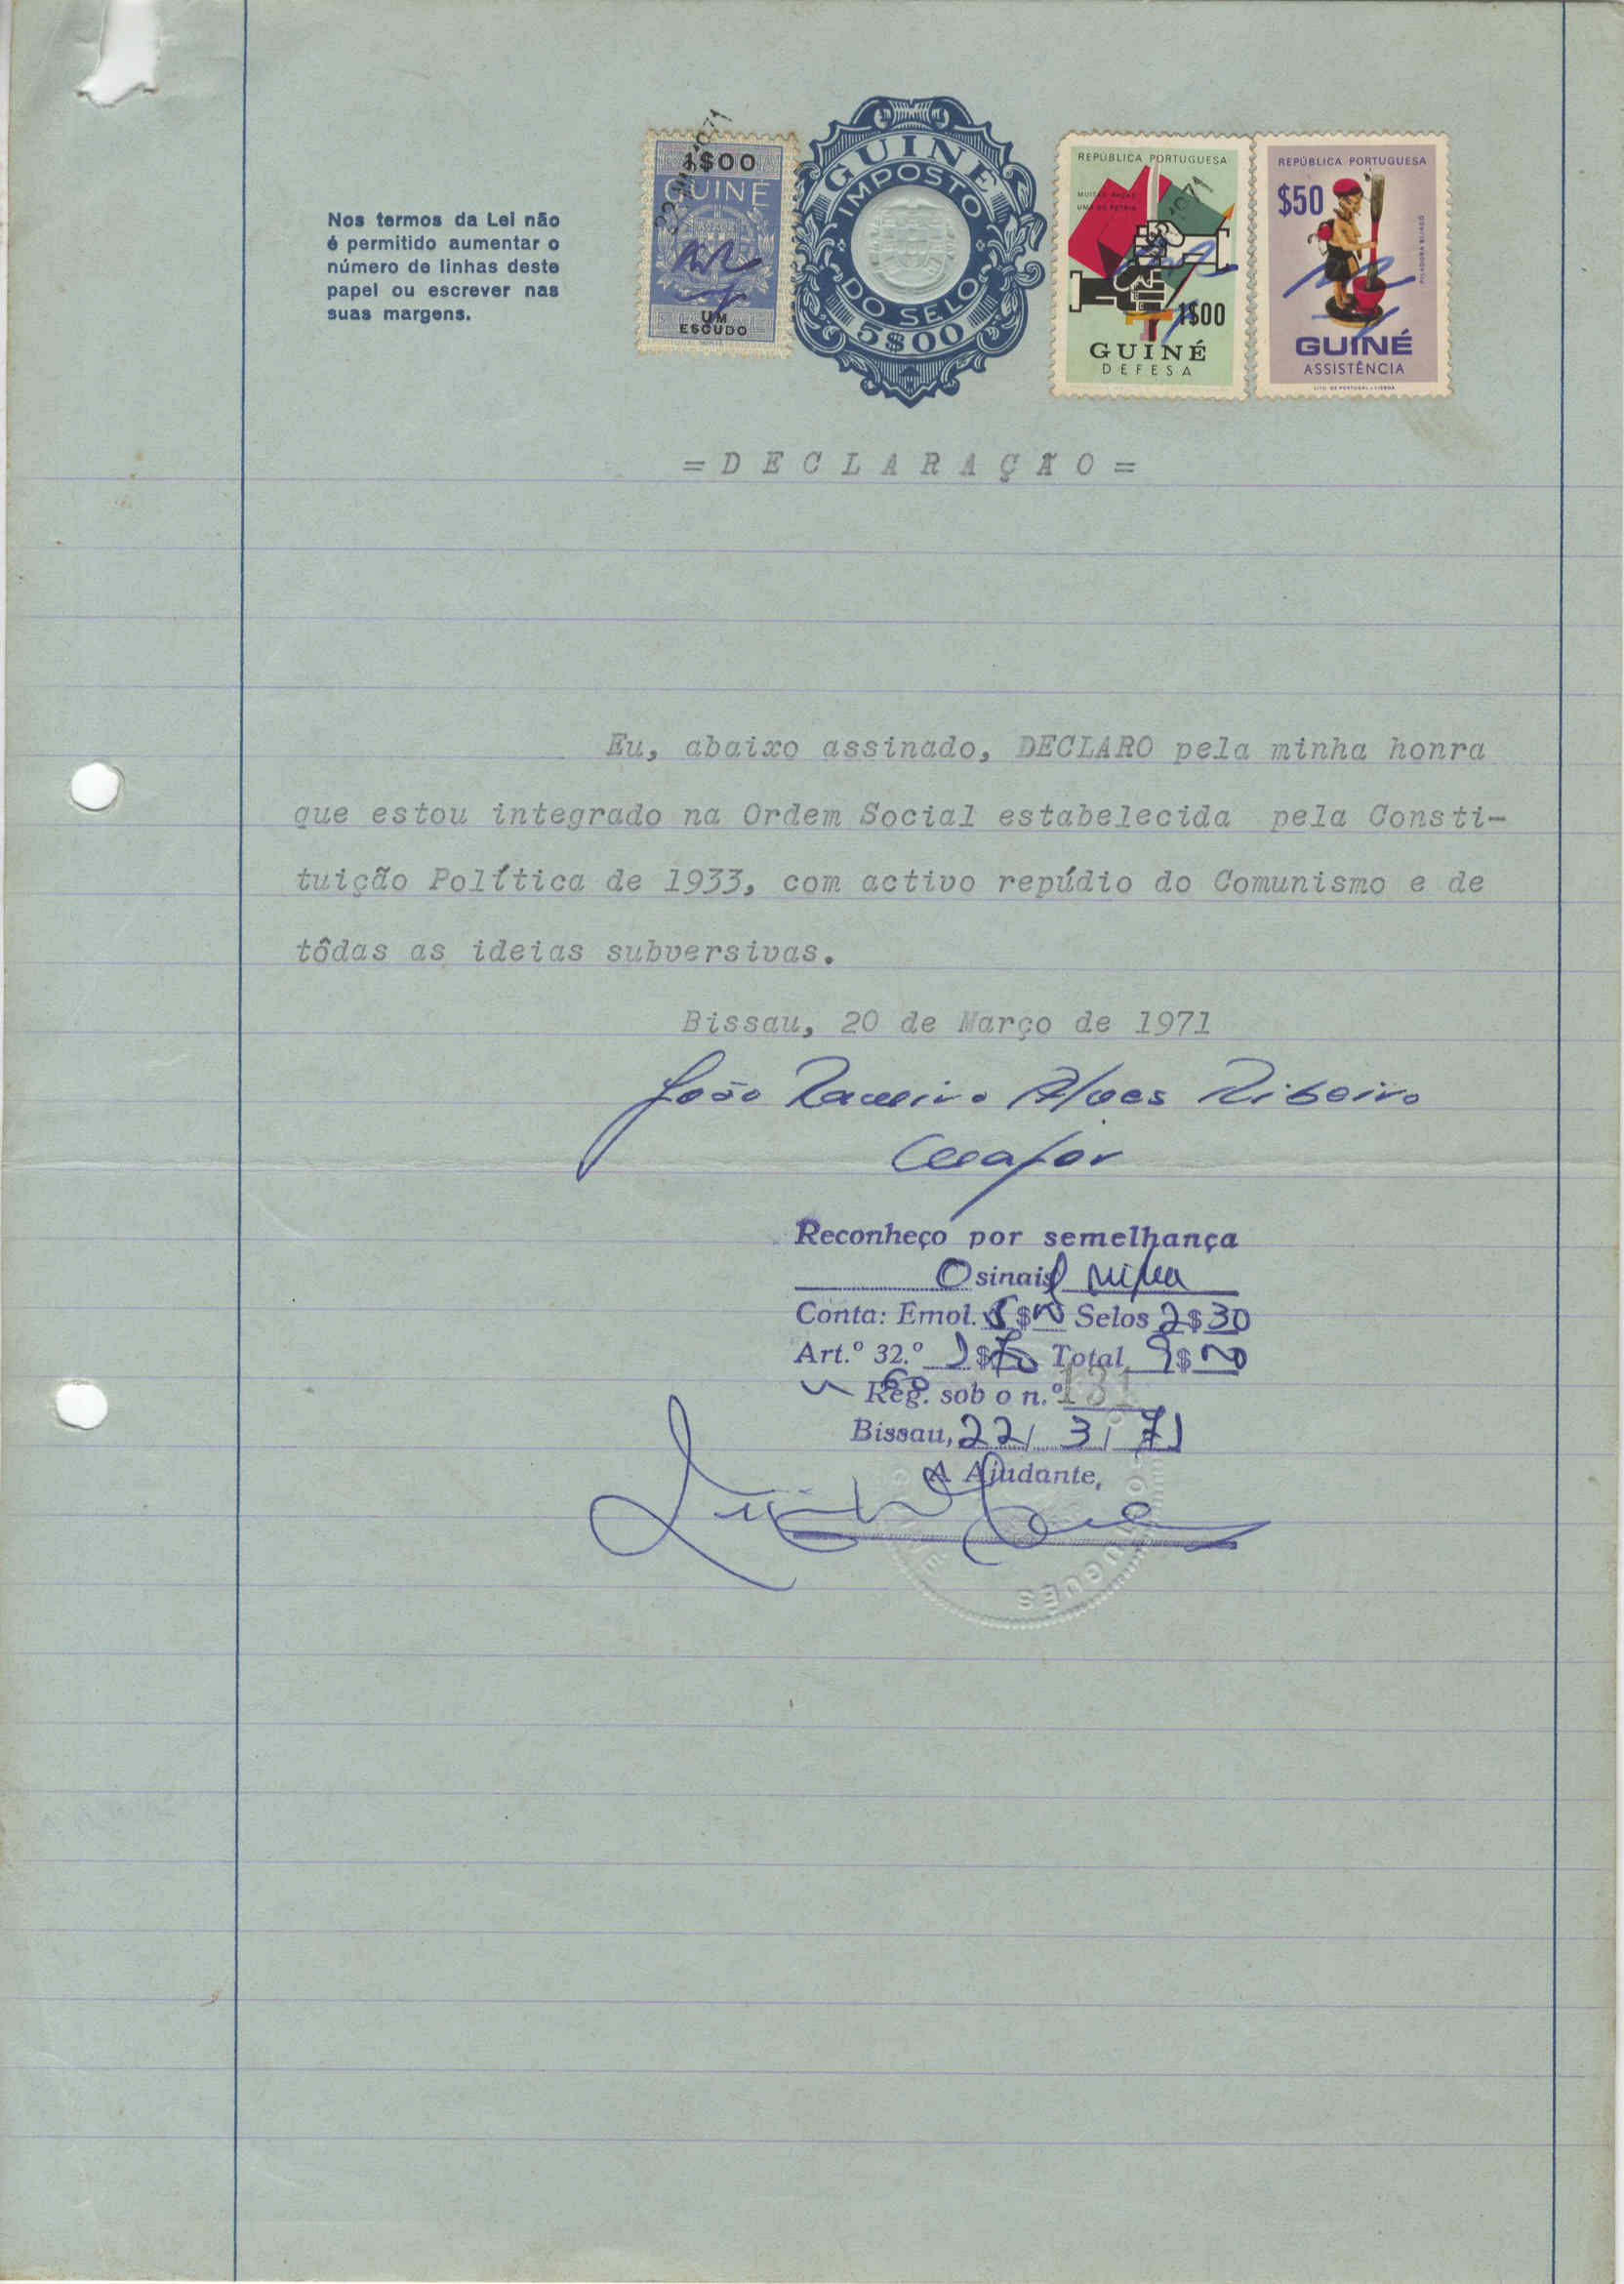 Nos termos da Lei não
é permitido aumentar o
número de linhas deste
papel ou escrever nas
suas margens.
1$00
GUINÉ
UM
ESCUDO
GUINÉ
IMPOSTO
DO SELO
5$00
REPÚBLICA PORTUGUESA
1$00
GUINÉ
DEFESA
REPÚBLICA PORTUGUESA
$50
GUINÉ
ASSISTÊNCIA
LITO. DE PORTUGAL-LISBOA
=DECLARAÇÃO=
Eu, abaixo assinado, DECLARO pela minha honra
que estou integrado na Ordem Social estabelecida pela Consti-
tuição Política de 1933, com activo repúdio do Comunismo e de
tôdas as ideias subversivas.
Bissau, 20 de Março de 1971
João Ramiro Alves Ribeiro
Reconheço por semelhança
O sinais supra
Conta: Emol. $ Selos 2$30
Art.º 32.º $70 Total 9$00
Reg. sob o n.º 131
Bissau, 22/ 3/ 71
A Ajudante,